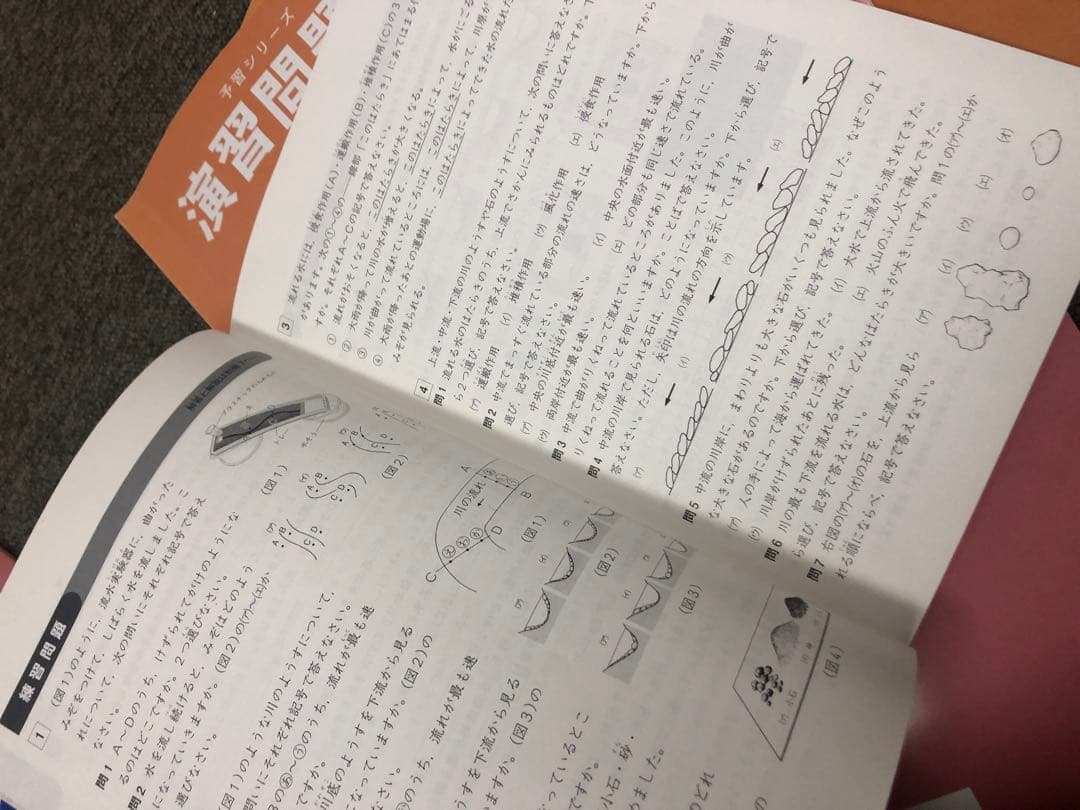 予習シリーズ
演習問題
3
流れる水には、侵食作用(A)・運搬作用(B)・堆積作用(C)の3
があります。次の①~④の――線部「このはたらき」にあてはまる
すか。それぞれA~Cの記号で答えなさい。
① 流れがおそくなると、このはたらきが大きくなる。
② 大雨が降って川の水が増えると、このはたらきによって、水がにごる
③ 川が曲がって流れているところには、このはたらきによって、川岸が
④ 大雨が降ったあとの運動場に、このはたらきによってできた水の流れた
みぞが見られる。
4
上流・中流・下流の川のようすや石のようすについて、次の問いに答えなさ
問1 流れる水のはたらきのうち、上流でさかんにみられるものはどれですか。下
ら2つ選び、記号で答えなさい。
(ア) 運搬作用 (イ) 堆積作用 (ウ) 風化作用 (エ) 侵食作用
問2 中流でまっすぐ流れている部分の流れの速さは、どうなっていますか。下から
選び、記号で答えなさい。
(ア) 中央の川底付近が最も速い。 (イ) 中央の水面付近が最も速い。
(ウ) 両岸付近が最も速い。 (エ) どの部分も同じ速さで流れている。
問3 中流で曲がりくねって流れているところがありました。このように、川が曲が
りくねって流れることを何といいますか。ことばで答えなさい。
問4 中流の川岸で見られる石は、どのようになっていますか。下から選び、記号で
答えなさい。ただし、矢印は川の流れの方向を示しています。
(ア) (イ) (ウ) (エ)
問5 中流の川岸に、まわりよりも大きな石がいくつも見られました。なぜこのよう
な大きな石があるのですか。下から選び、記号で答えなさい。
(ア) 人の手によって海から運ばれてきた。 (イ) 大水で上流から流されてきた。
(ウ) 川岸がけずられたあとに残った。 (エ) 火山のふん火で飛んできた。
問6 川の最も下流を流れる水は、どんなはたらきが大きいですか。問1の(ア)~(エ)か
ら選び、記号で答えなさい。
問7 右図の(ア)~(オ)の石を、上流から見ら
れる順にならべ、記号で答えなさい。
(ア) (イ) (ウ) (エ) (オ)
練習問題
1
(図1)のように、流水実験器に、曲がった
みぞをつけて、しばらく水を流しました。こ
れについて、次の問いにそれぞれ記号で答え
なさい。
問1 A~Dのうち、けずられてがけのようにな
るのはどこですか。2つ選びなさい。
問2 水を流し続けると、みぞはどのよう
になっていきますか。(図2)の(ア)~(エ)か
選びなさい。
(図1)
(図2)
(図1)のような川のようすについて、
問いにそれぞれ記号で答えなさい。
ですか。
川底のようすを下流から見る
になっていますか。(図2)の
のうち、流れが最も速
すを下流から見る
ますか。(図3)の
なっているとこ
小石・砂・
めました。
のどれ
A
川の流れ
B
C
D
(図1)
(図2)
(図3)
(ア) 小石
(図4)